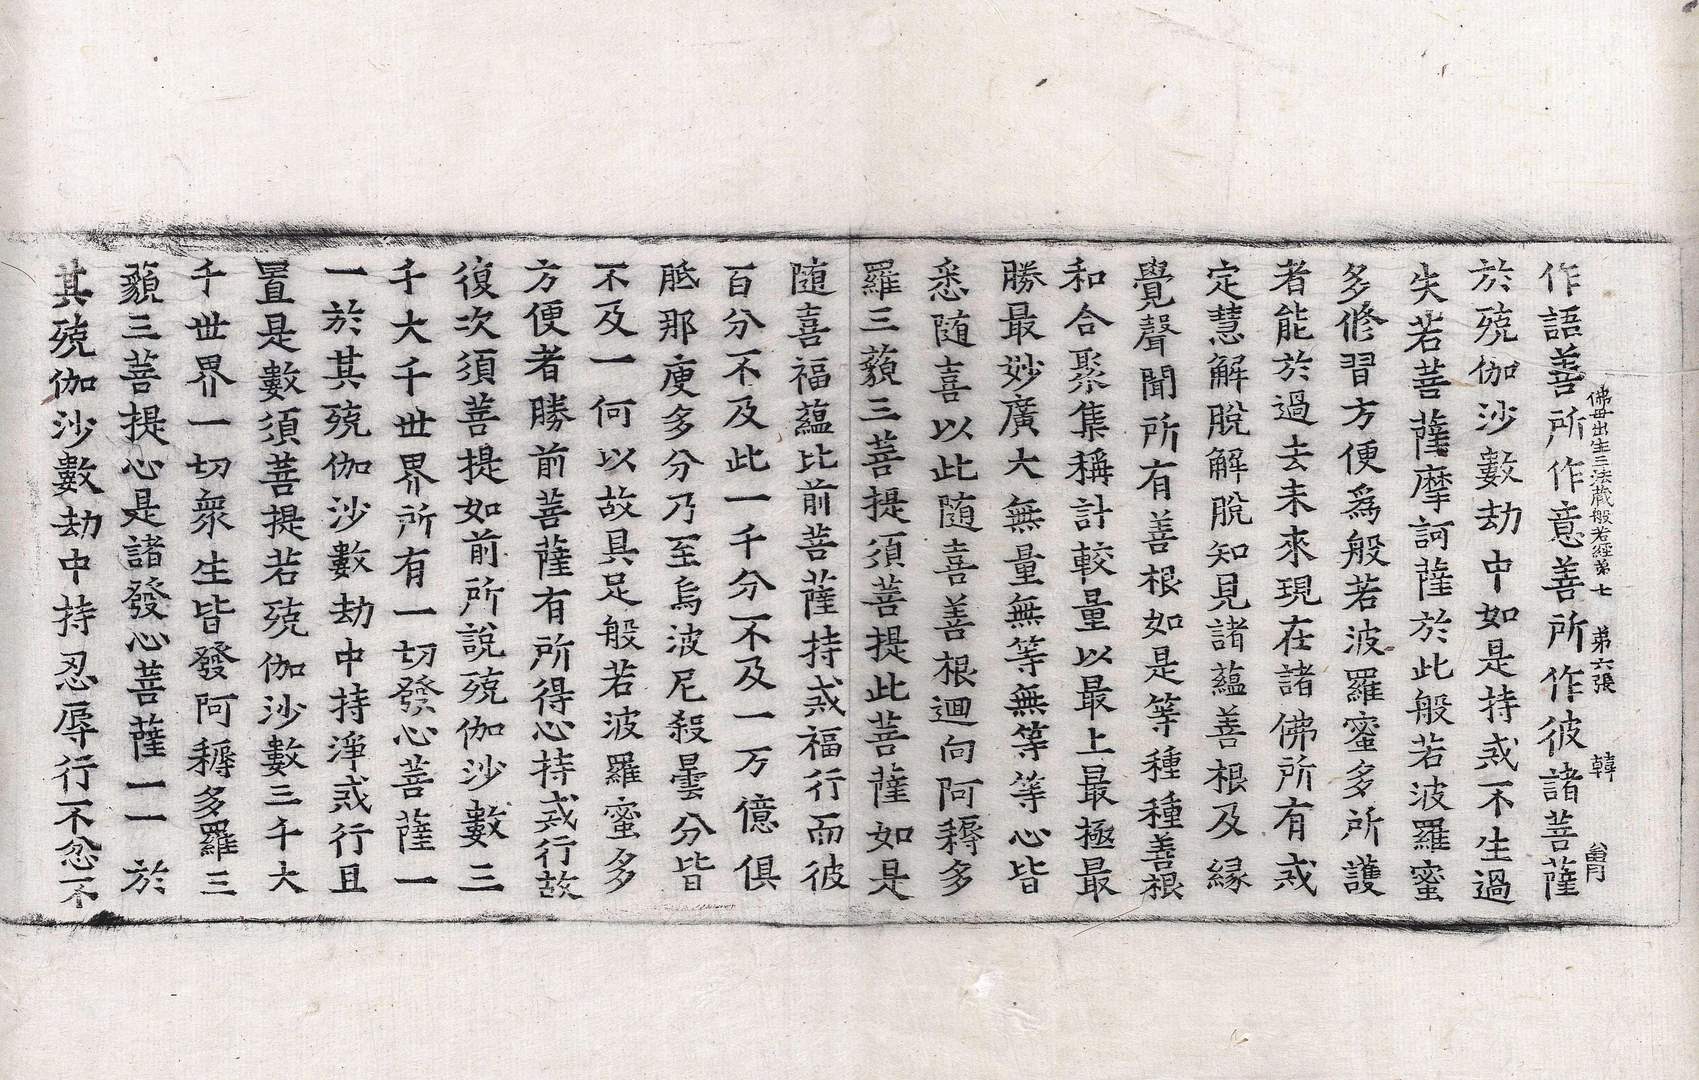 佛母出生三法藏般若經第七 第六張 韓
作語善所作意善所作彼諸菩薩
於殑伽沙數劫中如是持戒不生過
失若菩薩摩訶薩於此般若波羅蜜
多修習方便爲般若波羅蜜多所護
者能於過去未來現在諸佛所有戒
定慧解脫解脫知見諸蘊善根及緣
覺聲聞所有善根如是等種種善根
和合聚集稱計較量以最上最極最
勝最妙廣大無量無等無等等心皆
悉隨喜以此隨喜善根迴向阿耨多
羅三藐三菩提須菩提此菩薩如是
隨喜福蘊比前菩薩持戒福行而彼
百分不及此一千分不及一万億俱
胝那庾多分乃至烏波尼殺曇分皆
不及一何以故具足般若波羅蜜多
方便者勝前菩薩有所得心持戒行故
復次須菩提如前所說殑伽沙數三
千大千世界所有一切發心菩薩一
一於其殑伽沙數劫中持淨戒行且
置是數須菩提若殑伽沙數三千大
千世界一切衆生皆發阿耨多羅三
藐三菩提心是諸發心菩薩一一於
其殑伽沙數劫中持忍辱行不忿不